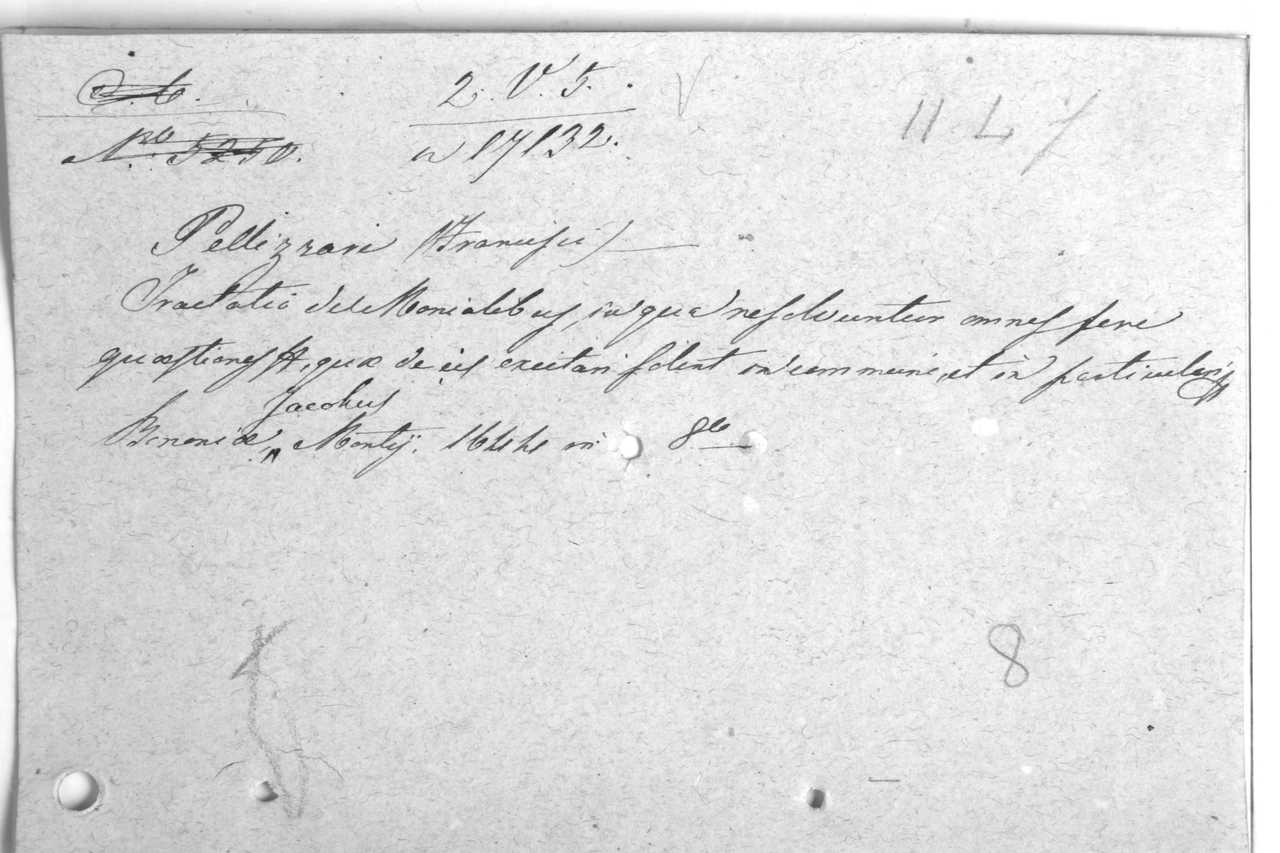 D. 6.
2. V. 5.
11 L 7
Nro 5250.
a 17132.
Pellizzari (Francisci)
Tractatio de Monialibus, in qua resolvuntur omnes fere
quæstiones, quæ de iis excitari solent in communi, et in particulari
Jacobus
Bononiæ, Montij. 1644 in 8vo
8